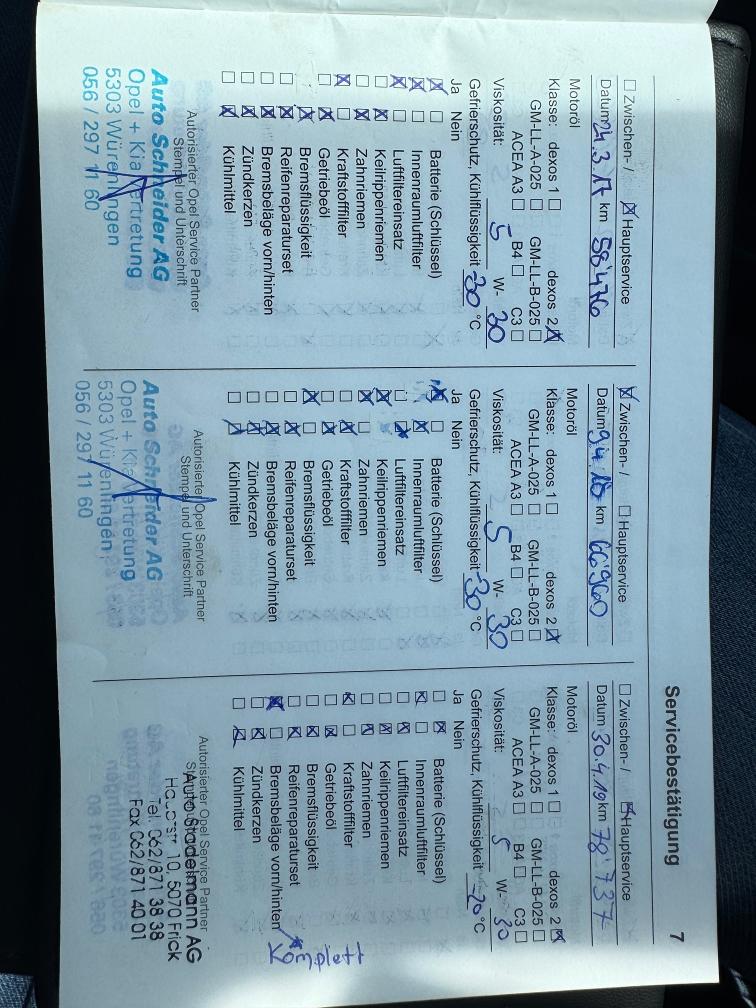 Servicebestätigung 7
☐ Zwischen- / ☒ Hauptservice
Datum 24.3.17 km 58'476
Motoröl
Klasse: dexos 1 ☐ dexos 2 ☒
GM-LL-A-025 ☐ GM-LL-B-025 ☐
ACEA A3 ☐ B4 ☐ C3 ☐
Viskosität: 5 W- 30
Gefrierschutz, Kühlflüssigkeit -30 °C
Ja Nein
☒ ☐ Batterie (Schlüssel)
☒ ☐ Innenraumluftfilter
☒ ☐ Luftfiltereinsatz
☐ ☒ Keilrippenriemen
☐ ☒ Zahnriemen
☒ ☐ Kraftstofffilter
☐ ☒ Getriebeöl
☐ ☒ Bremsflüssigkeit
☐ ☒ Reifenreparaturset
☐ ☒ Bremsbeläge vorn/hinten
☐ ☒ Zündkerzen
☐ ☒ Kühlmittel
Autorisierter Opel Service Partner
Stempel und Unterschrift
Auto Schneider AG
Opel + Kia Vertretung
5303 Würenlingen
056 / 297 11 60
☒ Zwischen- / ☐ Hauptservice
Datum 9.4.18 km 66'960
Motoröl
Klasse: dexos 1 ☐ dexos 2 ☒
GM-LL-A-025 ☐ GM-LL-B-025 ☐
ACEA A3 ☐ B4 ☐ C3 ☐
Viskosität: 5 W- 30
Gefrierschutz, Kühlflüssigkeit -30 °C
Ja Nein
☒ ☐ Batterie (Schlüssel)
☐ ☒ Innenraumluftfilter
☐ ☒ Luftfiltereinsatz
☒ Keilrippenriemen
☒ ☐ Zahnriemen
☐ ☒ Kraftstofffilter
☐ ☒ Getriebeöl
☒ ☐ Bremsflüssigkeit
☐ ☒ Reifenreparaturset
☐ ☒ Bremsbeläge vorn/hinten
☐ ☒ Zündkerzen
☐ ☒ Kühlmittel
Autorisierter Opel Service Partner
Stempel und Unterschrift
Auto Schneider AG
Opel + Kia Vertretung
5303 Würenlingen
056 / 297 11 60
☐ Zwischen- / ☒ Hauptservice
Datum 30.4.19 km 78'737
Motoröl
Klasse: dexos 1 ☐ dexos 2 ☒
GM-LL-A-025 ☐ GM-LL-B-025 ☐
ACEA A3 ☐ B4 ☐ C3 ☐
Viskosität: 5 W- 30
Gefrierschutz, Kühlflüssigkeit -20 °C
Ja Nein
☐ ☒ Batterie (Schlüssel)
☒ ☐ Innenraumluftfilter
☐ ☒ Luftfiltereinsatz
☐ ☒ Keilrippenriemen
☐ ☒ Zahnriemen
☒ ☐ Kraftstofffilter
☐ ☒ Getriebeöl
☐ ☒ Bremsflüssigkeit
☐ ☒ Reifenreparaturset
☒ ☐ Bremsbeläge vorn/hinten Komplett
☐ ☒ Zündkerzen
☐ ☒ Kühlmittel
Autorisierter Opel Service Partner
Auto Stadelmann AG
10, 5070 Frick
Tel. 062/871 38 38
Fax 062/871 40 01